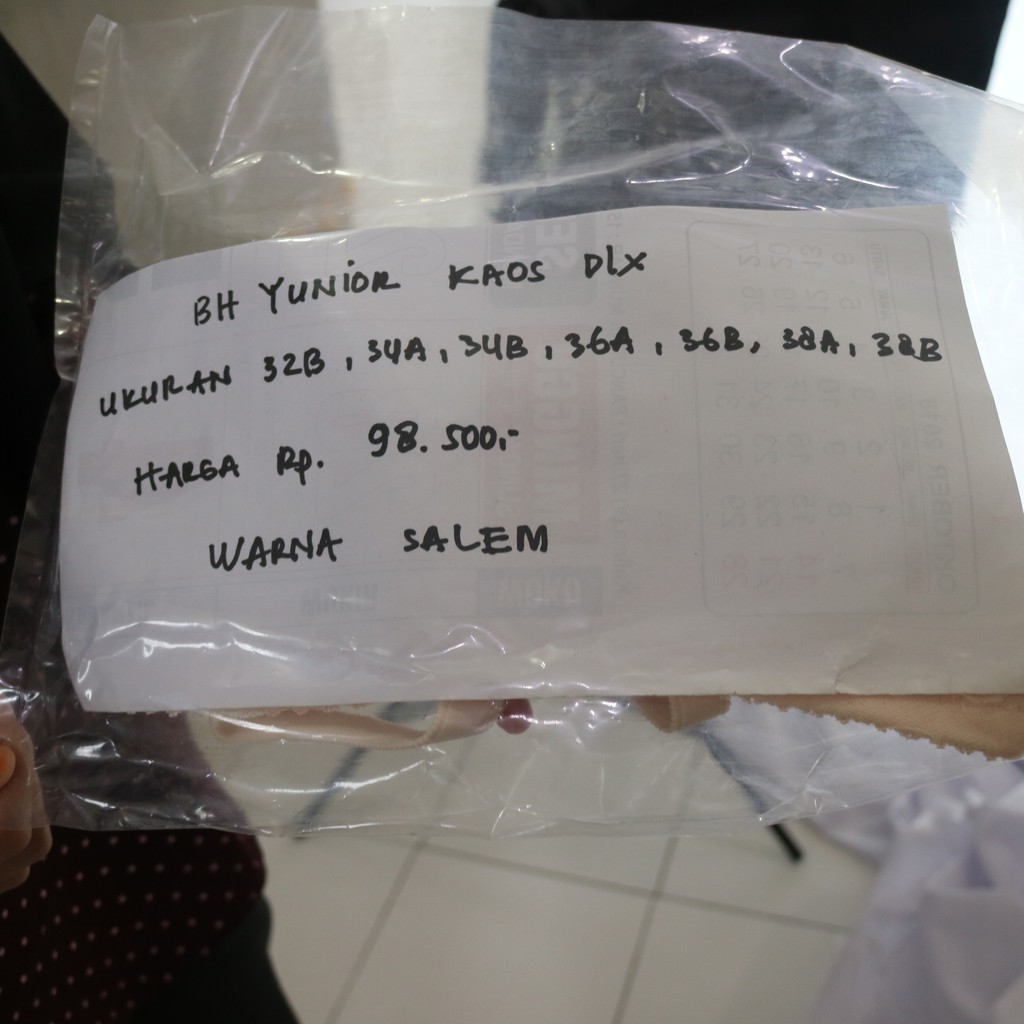 BH YUNIOR KAOS DLX
UKURAN 32B, 34A, 34B, 36A, 36B, 38A, 38B
HARGA Rp. 98.500,-
WARNA SALEM